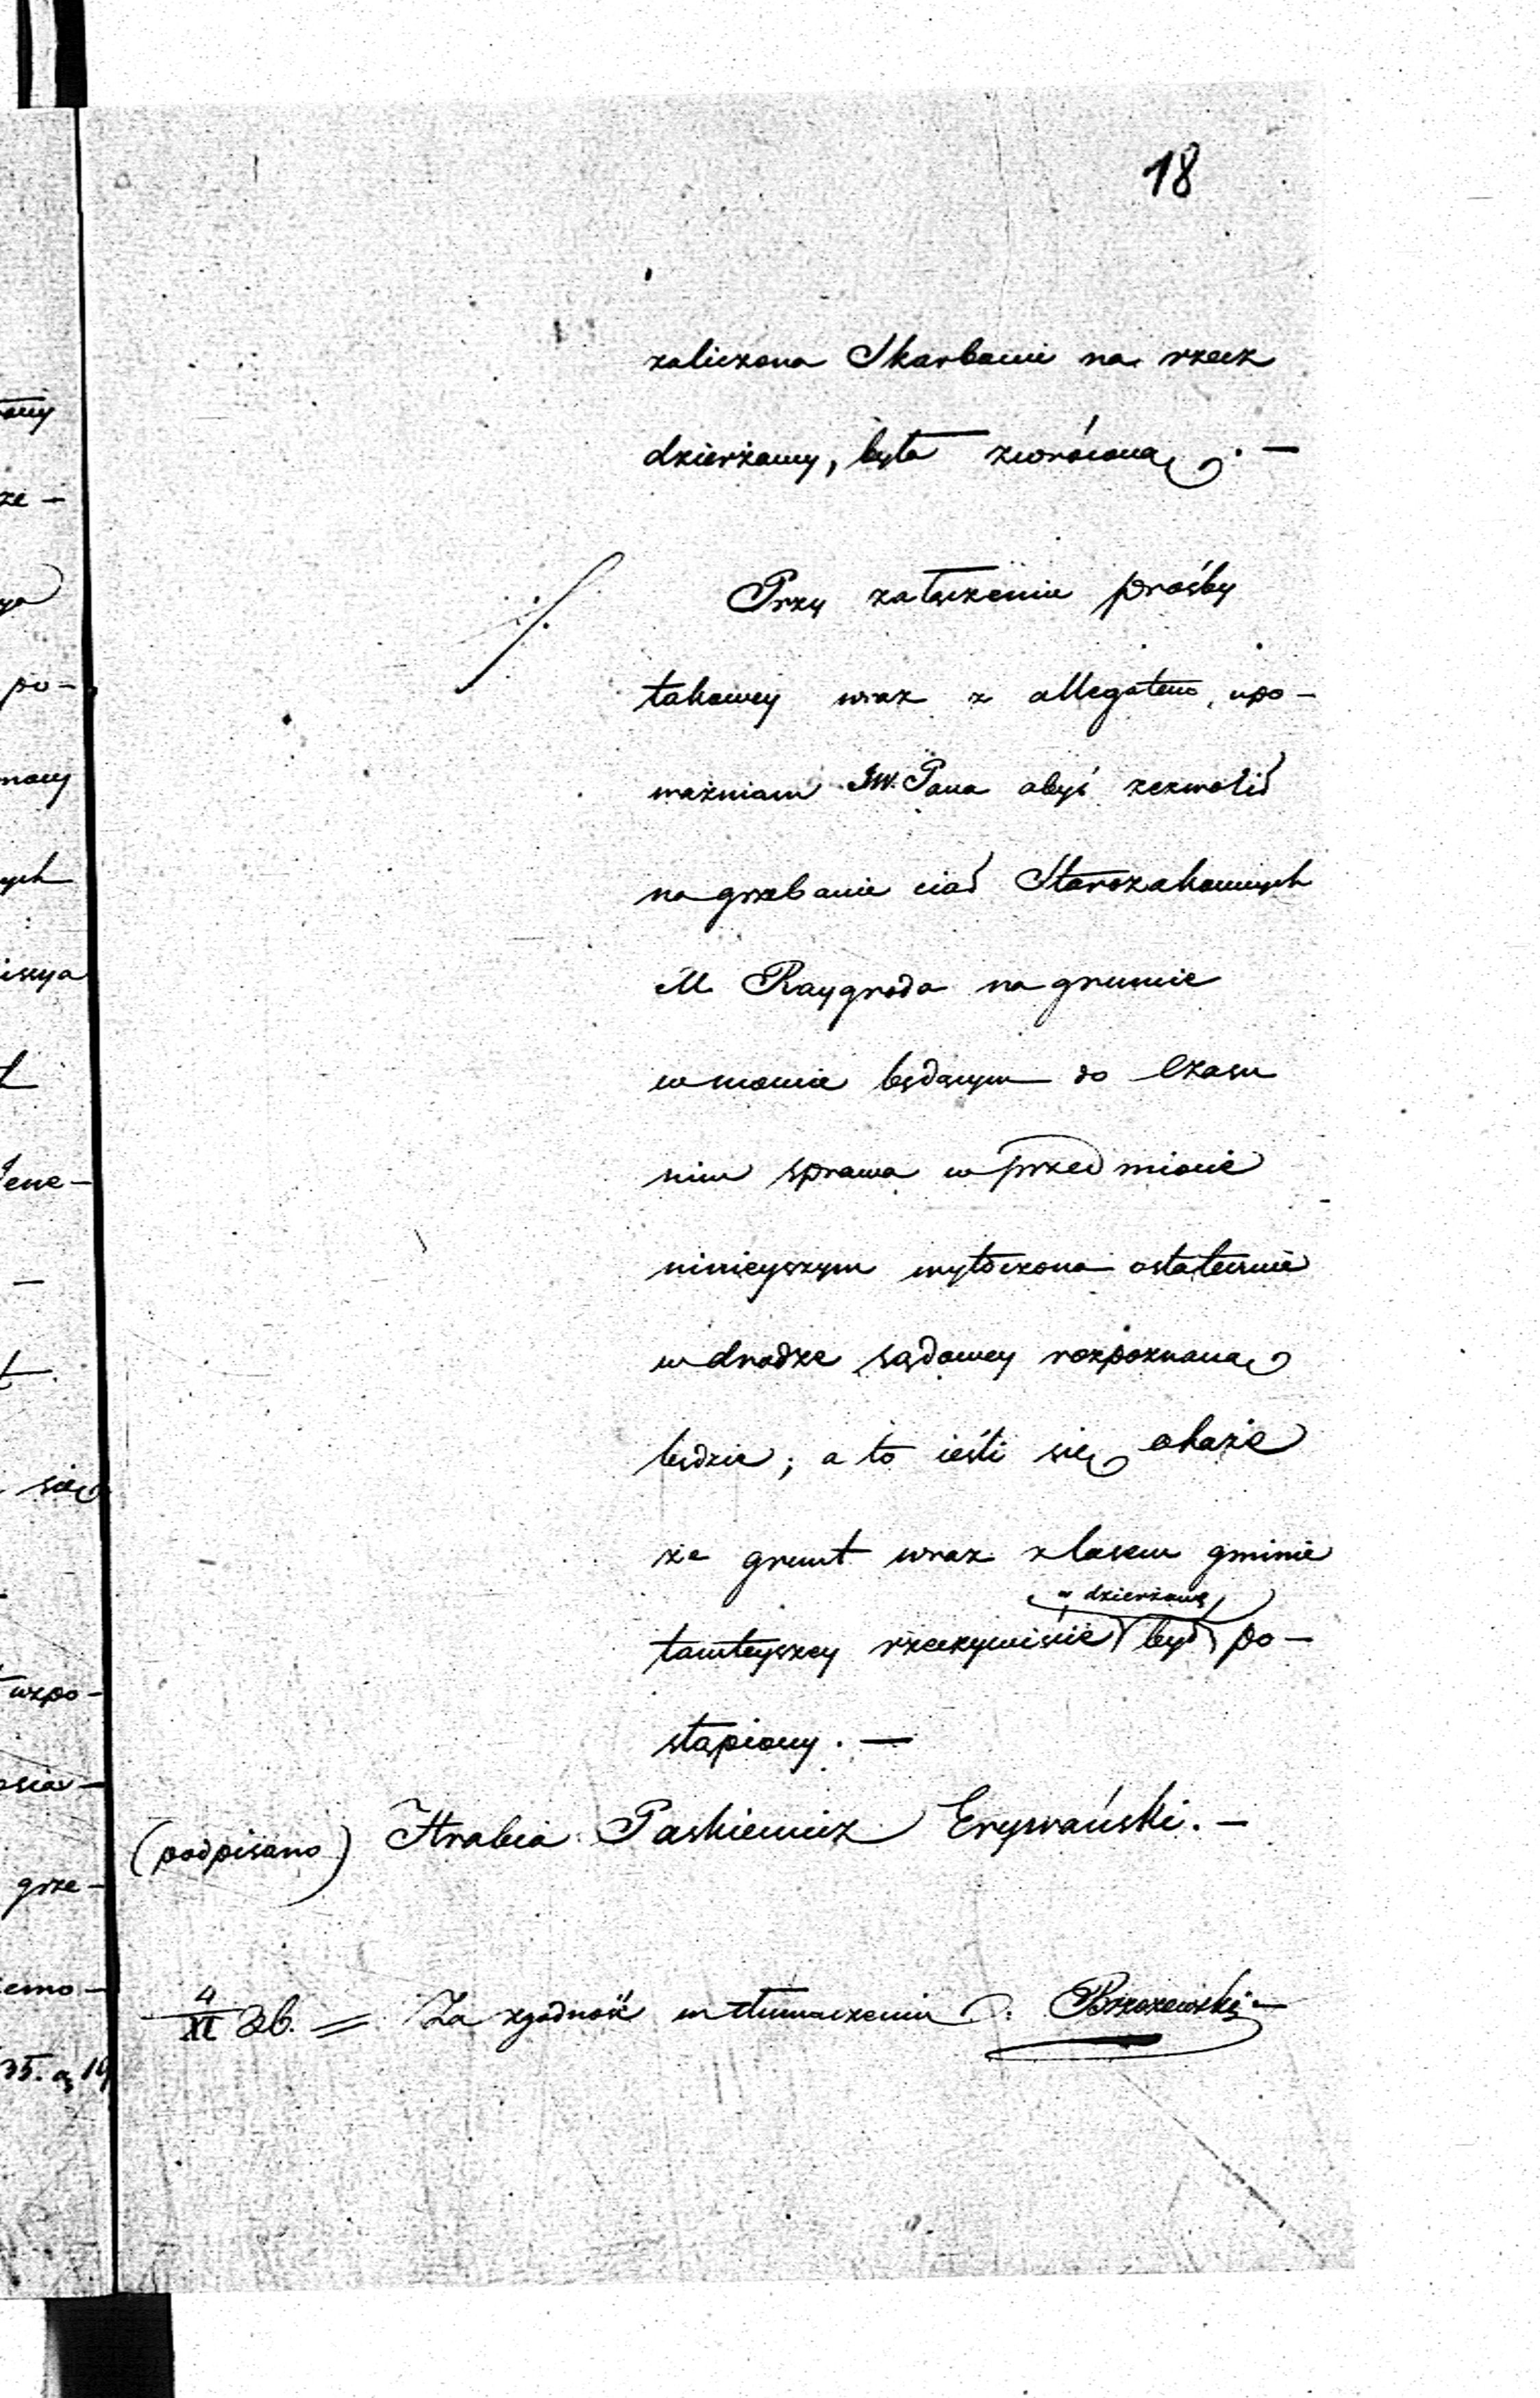 18
zaliczona Skarbowi na rzecz
dzierżawy, była zwróconą. —
Przy załączeniu prośby
takowey wraz z allegatem, upo-
ważniam JW. Pana abyś zezwolił
na grzebanie ciał Starozakonnych
M Raygroda na gruncie
w mowie będącym do czasu
nim sprawa w przedmiocie
ninieyszym wytoczona ostatecznie
w drodze sądowey rozpoznaną
będzie; a to ieśli się okaże
że grunt wraz z lasem gminie
w dzierżawę
tamteyszey rzeczywiście był po-
stąpiony. —
(podpisano) Hrabia Paskiewicz Erywański. —
4/XI 8b. = Za zgodność w tłumaczeniu Brzozowski
owy
że —
ya
po-
ych
issya
iene-
—
się
wzpo-
grze-
emo-